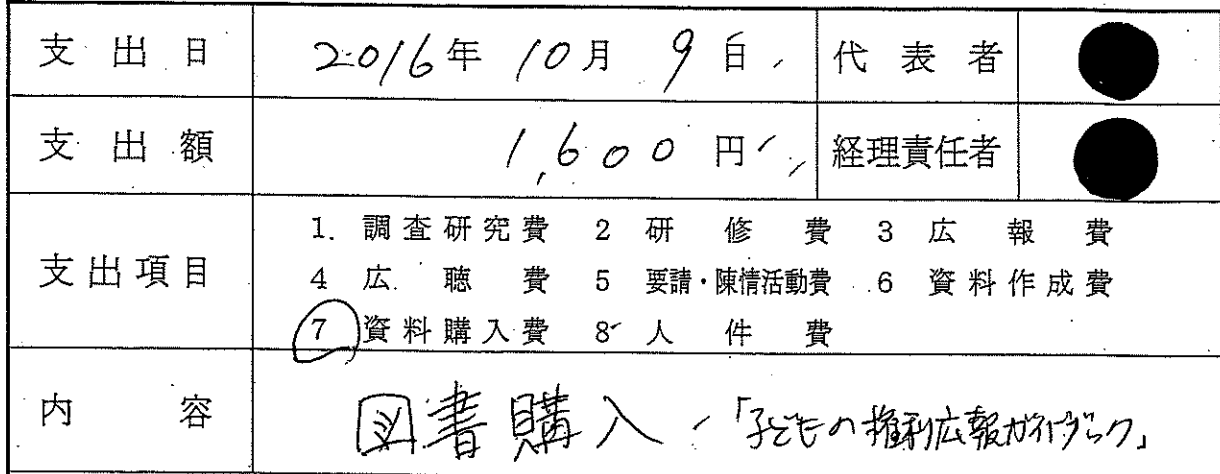 支出日 2016年10月9日 代表者
支出額 1,600円 経理責任者
支出項目 1. 調査研究費 2 研修費 3 広報費
4 広聴費 5 要請・陳情活動費 6 資料作成費
7 資料購入費 8 人件費
内容 図書購入 「子どもの権利広報ガイドブック」